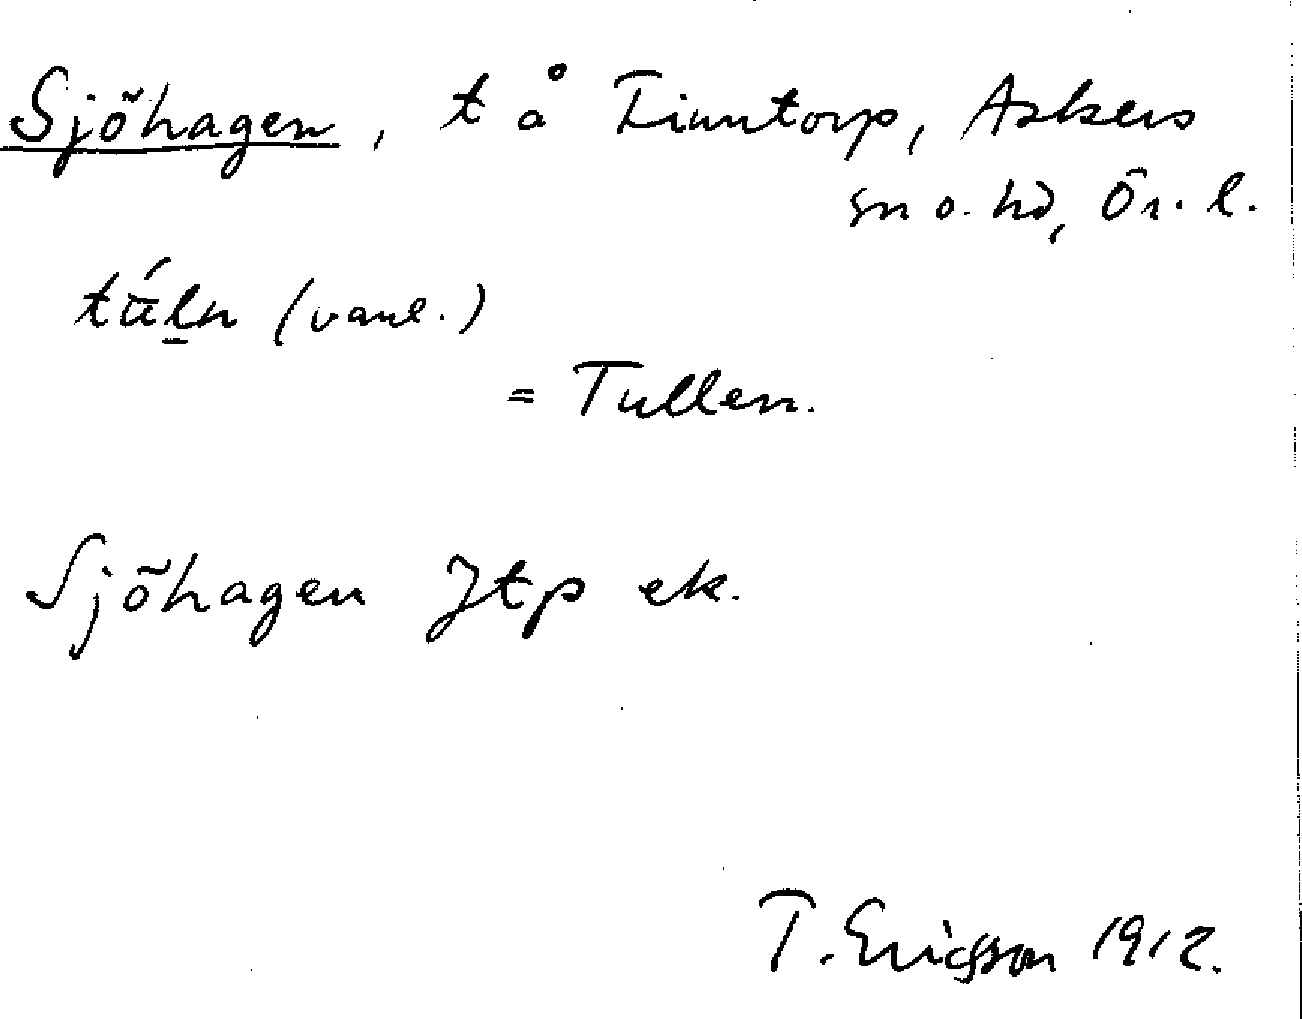 Sjöhagen, t å Finntorp, Askers
sn o. hd, Ör. l.
tú̄l̲n (vanl.)
= Tullen.
Sjöhagen Jtp ek.
T. Ericsson 1912.